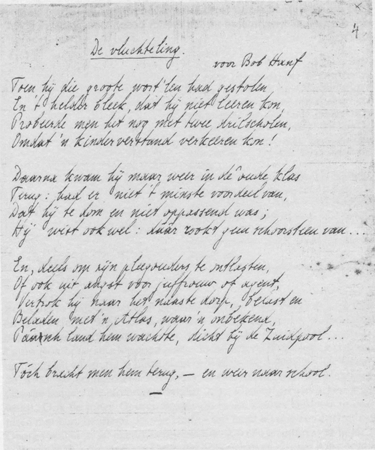 4
De vluchteling.
voor Bob Hanf
Toen hij die groote wortelen had gestolen
En 't helder bleek, dat hij niet leeren kon,
Probeerde men het nog met twee drilscholen,
Omdat 'n kinderverstand verkeeren kon!
Daarna kwam hij maar weer in de oude klas
Terug: had er niet 't minste voordeel van,
Dat hij te dom en niet oppassend was;
Hij wist ook wel: daar rookt geen schoorsteen van...
En, deels om zijn pleegouders te ontlasten,
Of ook uit angst voor juffrouw of agent,
Vertrok hij naar het naaste dorp, en
Beladen met 'n Atlas, waar 'n onbekend,
land hem wachtte, dicht bij de Zuidpool...
Tóch bracht men hem terug, — en weer naar school.